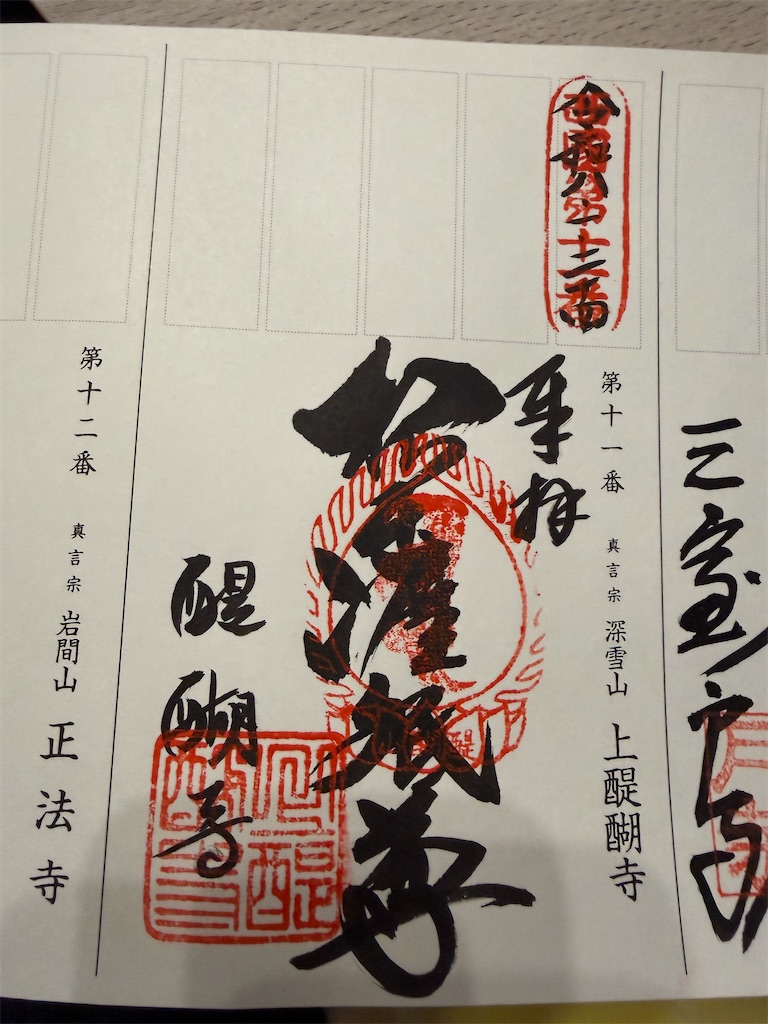 三室戸寺
西国第十一番
令和八
第十一番 真言宗 深雪山 上醍醐寺
奉拝
准胝尊
醍醐寺
第十二番 真言宗 岩間山 正法寺